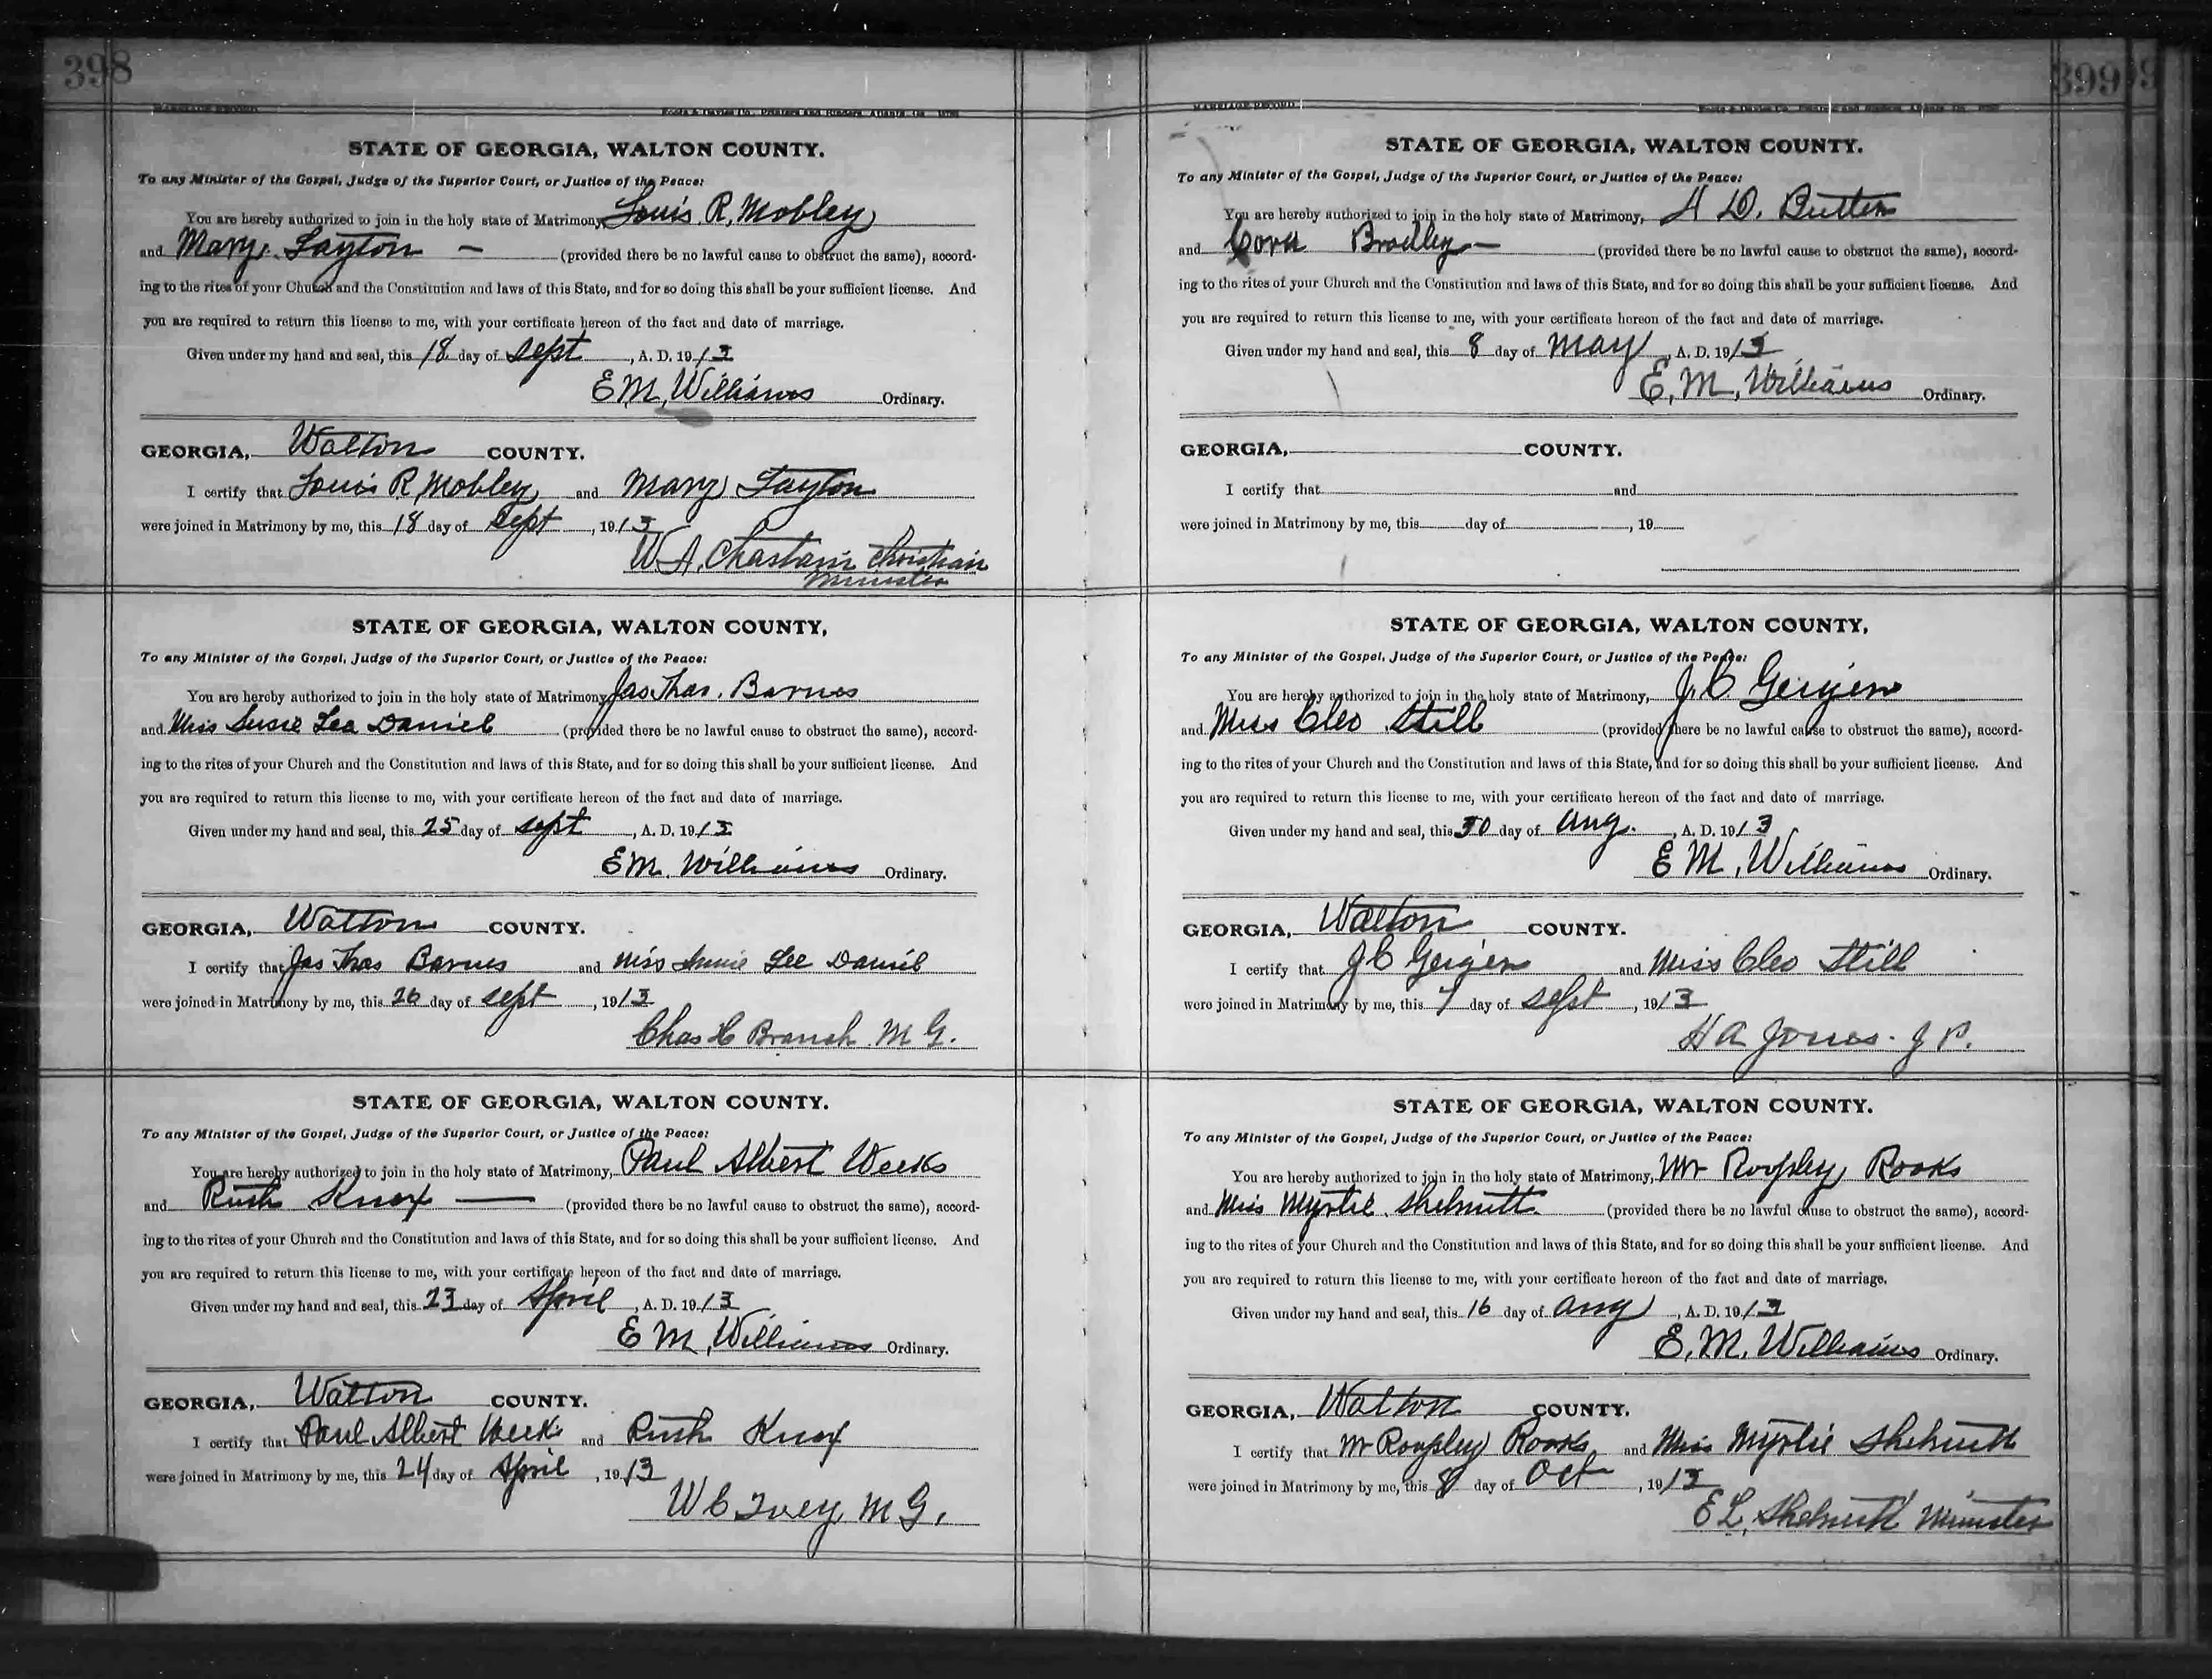 398
MARRIAGE RECORD
STATE OF GEORGIA, WALTON COUNTY.
To any Minister of the Gospel, Judge of the Superior Court, or Justice of the Peace:
You are hereby authorized to join in the holy state of Matrimony, Louis R, Mobley
and Mary Layton — (provided there be no lawful cause to obstruct the same), accord-
ing to the rites of your Church and the Constitution and laws of this State, and for so doing this shall be your sufficient license. And
you are required to return this license to me, with your certificate hereon of the fact and date of marriage.
Given under my hand and seal, this 18 day of Sept, A. D. 1913
E M, Williams Ordinary.
GEORGIA, Walton COUNTY.
I certify that Louis R, Mobley and Mary Layton
were joined in Matrimony by me, this 18 day of Sept, 1913
W. A, Chastain Christian
Minister
STATE OF GEORGIA, WALTON COUNTY,
To any Minister of the Gospel, Judge of the Superior Court, or Justice of the Peace:
You are hereby authorized to join in the holy state of Matrimony, Jas Thos. Barnes
and Miss Susie Lea Daniel (provided there be no lawful cause to obstruct the same), accord-
ing to the rites of your Church and the Constitution and laws of this State, and for so doing this shall be your sufficient license. And
you are required to return this license to me, with your certificate hereon of the fact and date of marriage.
Given under my hand and seal, this 25 day of Sept, A. D. 1913
E M. Williams Ordinary.
GEORGIA, Walton COUNTY.
I certify that Jas Thos Barnes and Miss Susie Lee Daniel
were joined in Matrimony by me, this 26 day of Sept, 1913
Chas H Branch. M G.
STATE OF GEORGIA, WALTON COUNTY.
To any Minister of the Gospel, Judge of the Superior Court, or Justice of the Peace:
You are hereby authorized to join in the holy state of Matrimony, Paul Albert Weeks
and Ruth Knox — (provided there be no lawful cause to obstruct the same), accord-
ing to the rites of your Church and the Constitution and laws of this State, and for so doing this shall be your sufficient license. And
you are required to return this license to me, with your certificate hereon of the fact and date of marriage.
Given under my hand and seal, this 23 day of April, A. D. 1913
E M, Williams Ordinary.
GEORGIA, Walton COUNTY.
I certify that Paul Albert Weeks and Ruth Knox
were joined in Matrimony by me, this 24 day of April, 1913
W C Ivey, M G.
399
MARRIAGE RECORD
STATE OF GEORGIA, WALTON COUNTY.
To any Minister of the Gospel, Judge of the Superior Court, or Justice of the Peace:
You are hereby authorized to join in the holy state of Matrimony, H D. Butten
and Cora Bradley — (provided there be no lawful cause to obstruct the same), accord-
ing to the rites of your Church and the Constitution and laws of this State, and for so doing this shall be your sufficient license. And
you are required to return this license to me, with your certificate hereon of the fact and date of marriage.
Given under my hand and seal, this 8 day of May, A. D. 1913
E, M, Williams Ordinary.
GEORGIA, COUNTY.
I certify that and
were joined in Matrimony by me, this day of , 19
STATE OF GEORGIA, WALTON COUNTY,
To any Minister of the Gospel, Judge of the Superior Court, or Justice of the Peace:
You are hereby authorized to join in the holy state of Matrimony, J. C Geigen
and Miss Cleo Still (provided there be no lawful cause to obstruct the same), accord-
ing to the rites of your Church and the Constitution and laws of this State, and for so doing this shall be your sufficient license. And
you are required to return this license to me, with your certificate hereon of the fact and date of marriage.
Given under my hand and seal, this 30 day of Aug., A. D. 1913
E M, Williams Ordinary.
GEORGIA, Walton COUNTY.
I certify that J C Geigen and Miss Cleo Still
were joined in Matrimony by me, this 7 day of Sept, 1913
H A Jones. J P.
STATE OF GEORGIA, WALTON COUNTY.
To any Minister of the Gospel, Judge of the Superior Court, or Justice of the Peace:
You are hereby authorized to join in the holy state of Matrimony, Mr Roopley Rooks
and Miss Myrtie Shelnutt (provided there be no lawful cause to obstruct the same), accord-
ing to the rites of your Church and the Constitution and laws of this State, and for so doing this shall be your sufficient license. And
you are required to return this license to me, with your certificate hereon of the fact and date of marriage.
Given under my hand and seal, this 16 day of Aug, A. D. 1913
E, M. Williams Ordinary.
GEORGIA, Walton COUNTY.
I certify that Mr Roopley Rooks and Miss Myrtie Shelnutt
were joined in Matrimony by me, this 8 day of Oct, 1913
E L, Shelnutt Minister